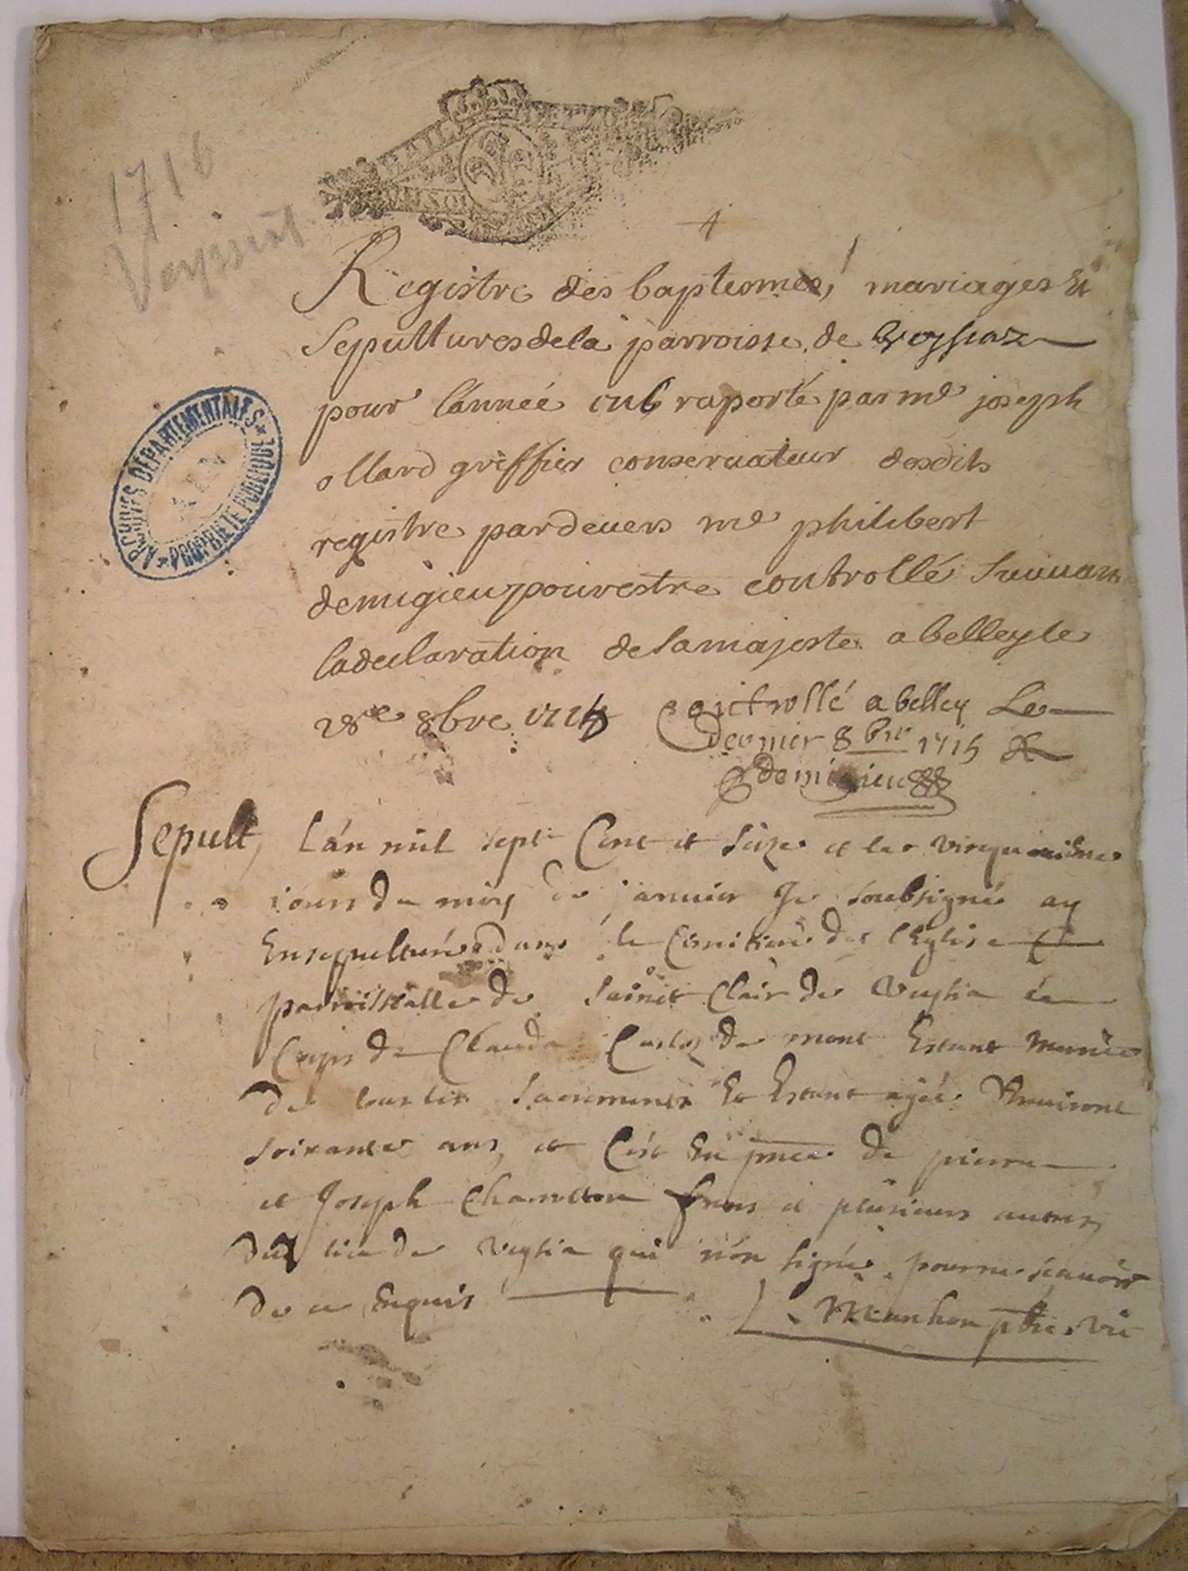 1716
Registre des baptesmes, mariages Et
Sepultures de la parroisse de Veyssiaz
pour l'année 1716 raporté par me joseph
ollard greffier conseruateur desdits
registre pardeuers me philibert
demigieu pour estre controllé Suiuant
la declaration de sa majeste a belley le
28e 8bre 1715
controllé a belley Le
dernier 8bre 1715
demigieu
ARCHIVES DÉPARTEMENTALES
AIN
PROPRIÉTÉ PUBLIQUE
Sepult, L'an mil sept Cent et Seize et le
iours du moys de januier Je soubsigné ay
Ensepulturé dans le Cimitiere de l'Eglise
parroissialle de Sainct Clair de Veysia le
Corps de Claude de mont Estant munie
de tous les Sacrements Et Estant agée d'enuiront
soixante ans, et C'est En pnce de pierre
et Joseph frers et plusieurs autres
du lieu de Veysia qui n'on signé pour ne scauoir
de ce Enquis
pbre Vic